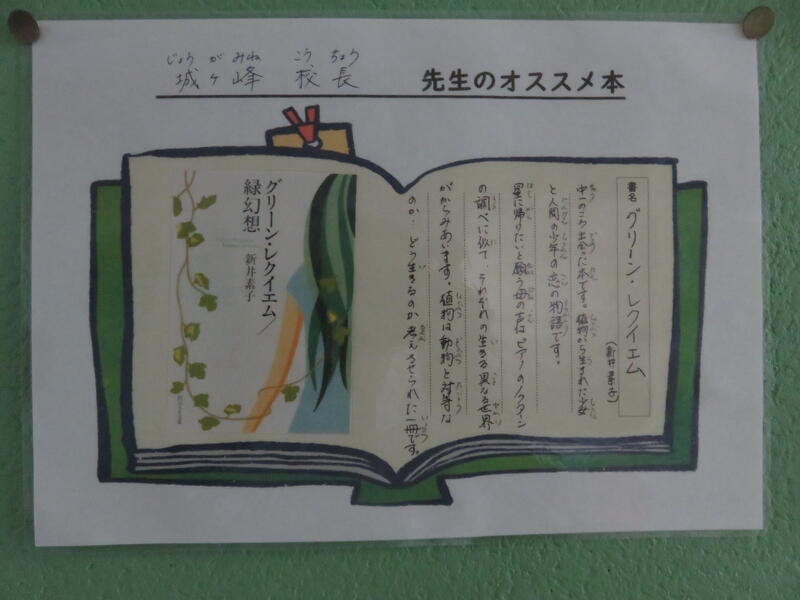 じょう が みね こう ちょう
城ヶ峰 校長
先生のオススメ本
書名 グリーン・レクイエム
(新井素子)
中一のころ出会った本です。植物から生まれた少女
と人間の少年の恋の物語です。
星に帰りたいと願う母の声はピアノのノクターン
の調べに似て、それぞれの生きる異なる世界
がからみあいます。植物は動物と対等な
のか、どう生きるのか考えさせられた一冊です。
グリーン・レクイエム/
緑幻想
新井素子